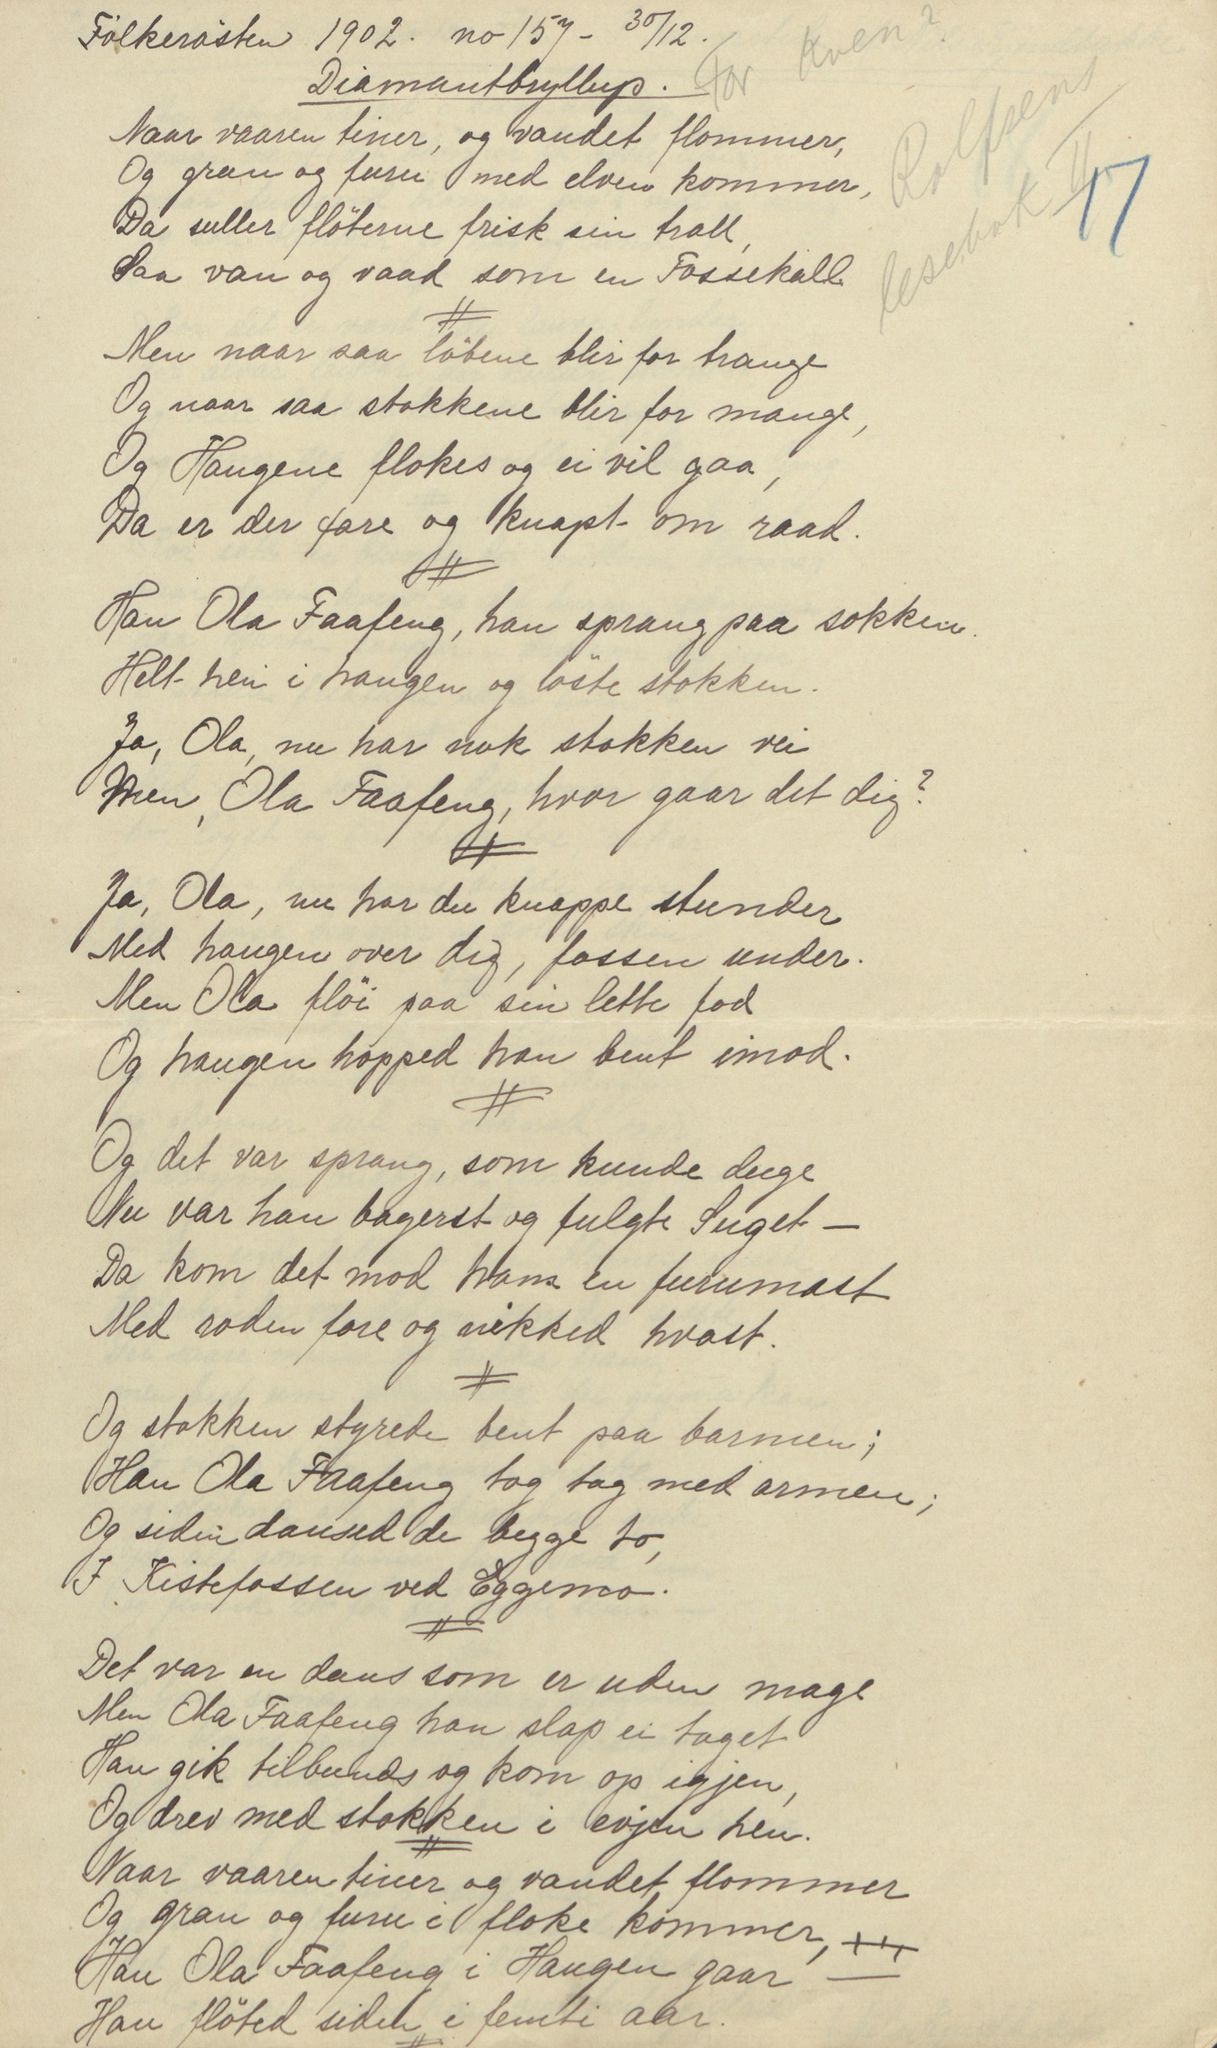 Folkerösten 1902. no 157 - 30/12.
For kven?
Diamantbryllup.
Rolfsens
lesebok II
17
Naar vaaren tiner, og vandet flommer,
Og gran og furu med elven kommer,
Da suller flöterne frisk sin trall,
Saa van og vaad som en Fossekall
Men naar saa löbene blir for trange
Og naar saa stokkene blir for mange,
Og Haugene flokes og ei vil gaa,
Da er der fare og knapt om raad.
Han Ola Faafeng, han sprang paa sokken.
Helt hen i haugen og löste stokken.
Ja, Ola, nu har nok stokken vei
Men, Ola Faafeng, hvor gaar det dig?
Ja, Ola, nu har du knappe stunder
Med haugen over dig, fossen under.
Men Ola flöi paa sin lette fod
Og haugen hopped han bent imod.
Og det var sprang, som kunde duge
Nu var han bagerst og fulgte Suget -
Da kom det mod ham en furumast
Med roden fore og nikked hvast.
Og stokken styrede bent paa barmen;
Han Ola Faafeng tog tag med armen;
Og siden dansed de begge to,
I Kistefossen ved Eggemo.
Det var en dans som er uden mage
Men Ola Faafeng han slap ei taget
Han gik tilbunds og kom op igjen,
Og drev med stokken i evjen hen.
Naar vaaren tiner og vandet flommer
Og gran og furu i floke kommer,
Han Ola Faafeng i Haugen gaar —
Han flöted siden i femti aar.